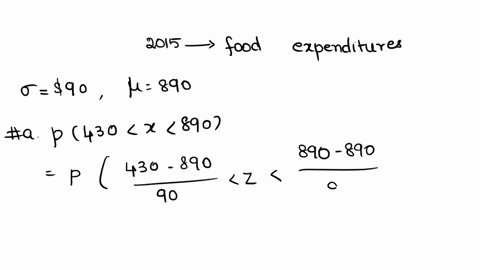 2015 → food expenditures
σ = $90 , μ = 890
#a. p (430 < x < 890)
= P ( 430 - 890 / 90 < z < 890 - 890 / 0